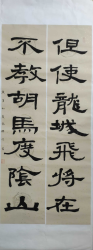 但使龍城飛將在
不教胡馬度陰山